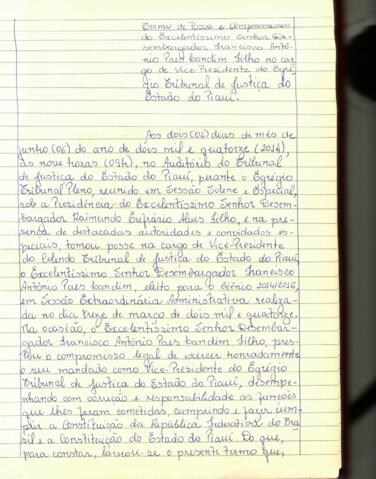 Termo de Posse e Compromisso
do Excelentíssimo Senhor De-
sembargador Francisco Antô-
nio Paes Landim Filho no car-
go de Vice-Presidente do Egré-
gio Tribunal de Justiça do
Estado do Piauí.
Aos dois (02) dias do mês de
junho (06) do ano de dois mil e quatorze (2014),
às nove horas (09h), no Auditório do Tribunal
de Justiça do Estado do Piauí, perante o Egrégio
Tribunal Pleno, reunido em Sessão Solene e Especial,
sob a Presidência do Excelentíssimo Senhor Desem-
bargador Raimundo Eufrásio Alves Filho, e na pre-
sença de destacadas autoridades e convidados es-
peciais, tomou posse no cargo de Vice-Presidente
do Colendo Tribunal de Justiça do Estado do Piauí,
o Excelentíssimo Senhor Desembargador Francisco
Antônio Paes Landim, eleito para o biênio 2014/2016,
em Sessão Extraordinária Administrativa realiza-
da no dia treze de março de dois mil e quatorze.
Na ocasião, o Excelentíssimo Senhor Desembar-
gador Francisco Antônio Paes Landim Filho, pres-
tou o compromisso legal de exercer honradamente
o seu mandado como Vice-Presidente do Egrégio
Tribunal de Justiça do Estado do Piauí, desempe-
nhando com correção e responsabilidade as funções
que lhes foram cometidas, cumprindo e fazer cum-
prir a Constituição da República Federativa do Bra-
sil e a Constituição do Estado do Piauí. Do que,
para constar, lavrou-se o presente termo que,